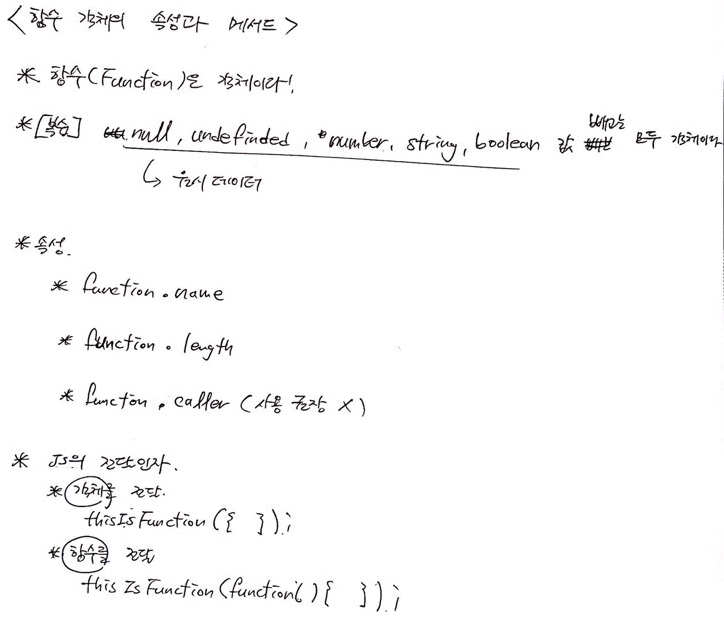 <함수 객체의 속성과 메서드>
* 함수(Function)은 객체이라!
* [복습] null, undefinded, number, string, boolean 값 빼고는 모두 객체이라
↳ 원시 데이터
* 속성.
* function.name
* function.length
* functon.caller (사용 권장 X)
* JS의 전달인자.
* 객체를 전달.
thisIsFunction({ });
* 함수를 전달
this Is Function(function( ){ });